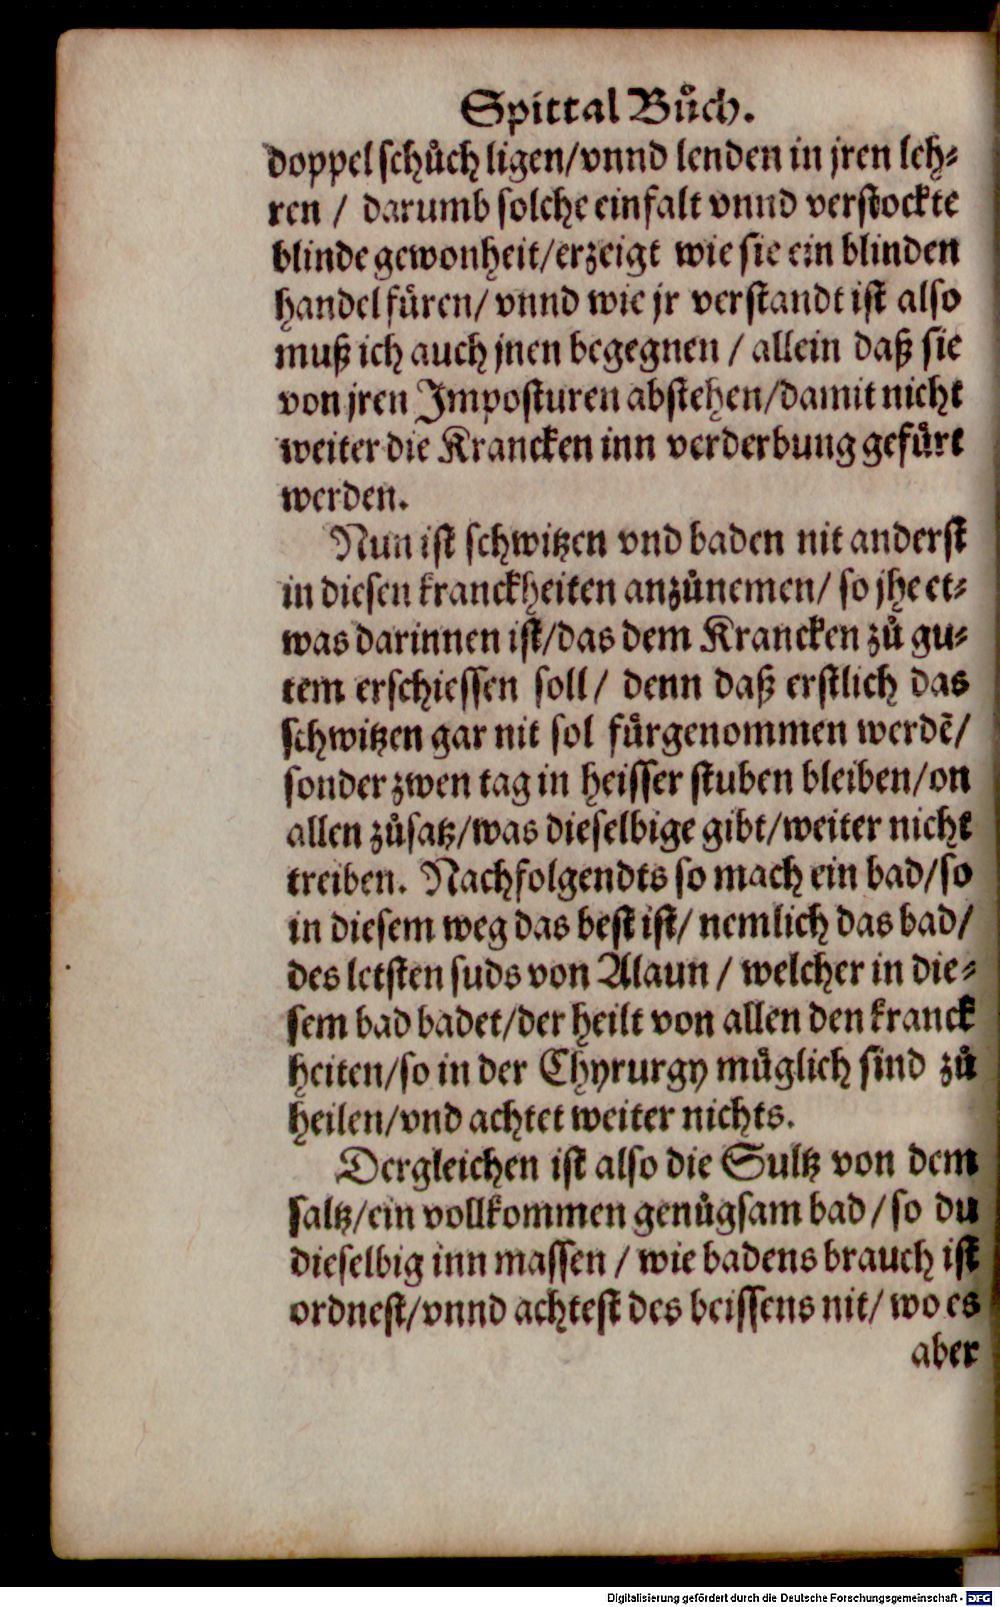 Spittal Bůch.
doppel schůch ligen/vnnd lenden in jren leh⸗
ren / darumb solche einfalt vnnd verstockte
blinde gewonheit/erzeigt wie sie ein blinden
handel fůren/ vnnd wie jr verstandt ist also
muß ich auch jnen begegnen / allein daß sie
von jren Imposturen abstehen/damit nicht
weiter die Krancken inn verderbung gefůrt
werden.
Nun ist schwitzen vnd baden nit anderst
in diesen kranckheiten anzůnemen/ so jhe et⸗
was darinnen ist/das dem Krancken zů gu⸗
tem erschiessen soll/ denn daß erstlich das
schwitzen gar nit sol fůrgenommen werdẽ/
sonder zwen tag in heisser stuben bleiben/on
allen zůsatz/was dieselbige gibt/weiter nicht
treiben. Nachfolgendts so mach ein bad/so
in diesem weg das best ist/ nemlich das bad/
des letsten suds von Alaun / welcher in die⸗
sem bad badet/der heilt von allen den kranck
heiten/so in der Chyrurgy můglich sind zů
heilen/vnd achtet weiter nichts.
Dergleichen ist also die Sultz von dem
saltz/ein vollkommen genůgsam bad/so du
dieselbig inn massen / wie badens brauch ist
ordnest/vnnd achtest des beissens nit/ wo es
aber
Digitalisierung gefördert durch die Deutsche Forschungsgemeinschaft - DFG